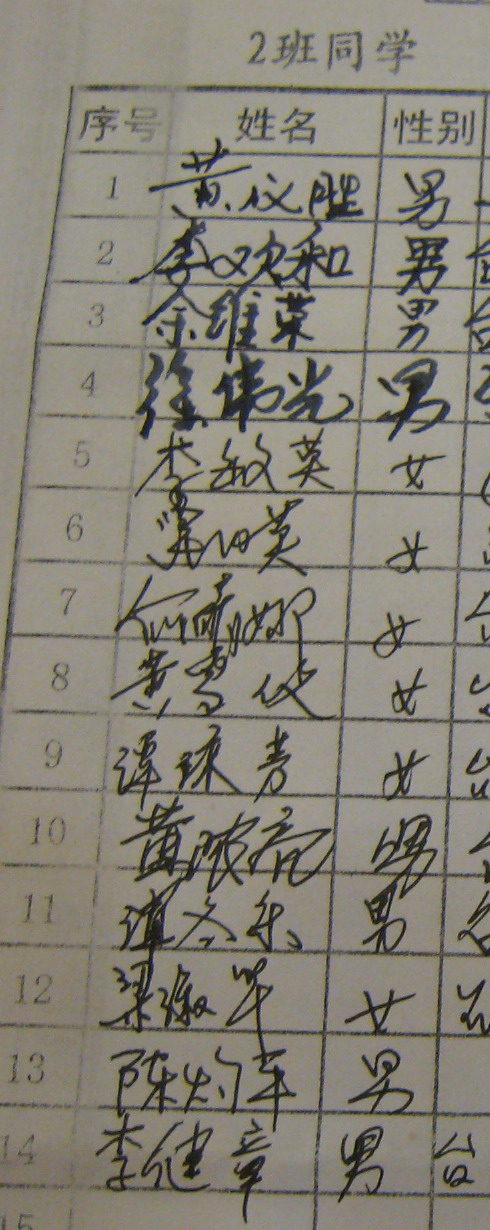 2班同学
序号 姓名 性别
1 黄仪胜 男
2 李欢和 男 台
3 余维荣 男 台
4 徐伟光 男
5 李敏英 女
6 英 女
7 何 娜 女
8 黄雪 女
9 谭琼芳 女
10 黄 亮 男
11 谭 乐 男
12 梁淑 女
13 陈灼军 男
14 李健章 男 台
15